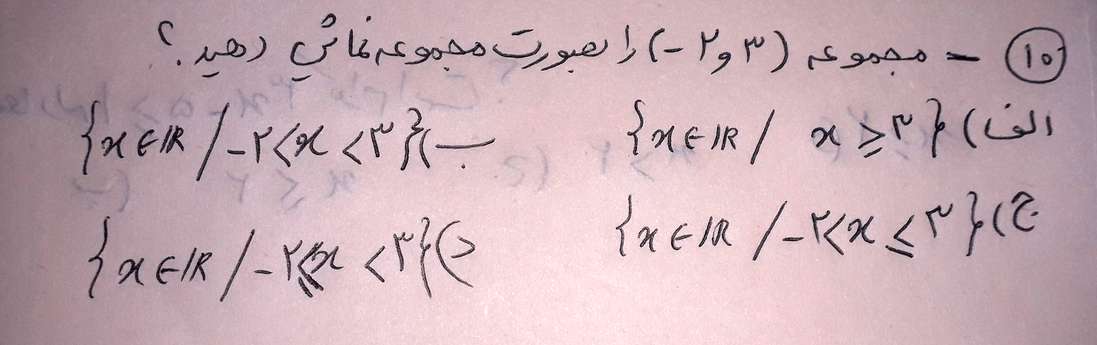 ۱۰ - مجموعه (۳ و ۲-) را بصورت مجموعه نمایش دهید؟
الف) {x ∈ IR / x ≥ ۳} ب) {x ∈ IR / -۲ < x < ۳}
ج) {x ∈ IR / -۲ < x ≤ ۳} د) {x ∈ IR / -۲ ≤ x < ۳}